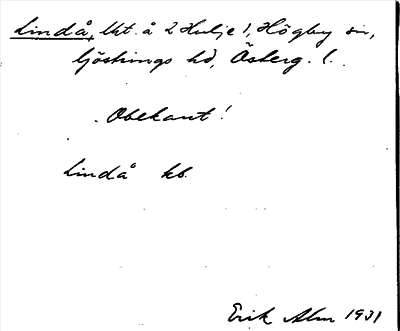 Lindå, lht. å 2 Hulje 1, Högby sn,
Göstrings hd, Österg. l.
Obekant!
Lindå kb.
Erik Alm 1931